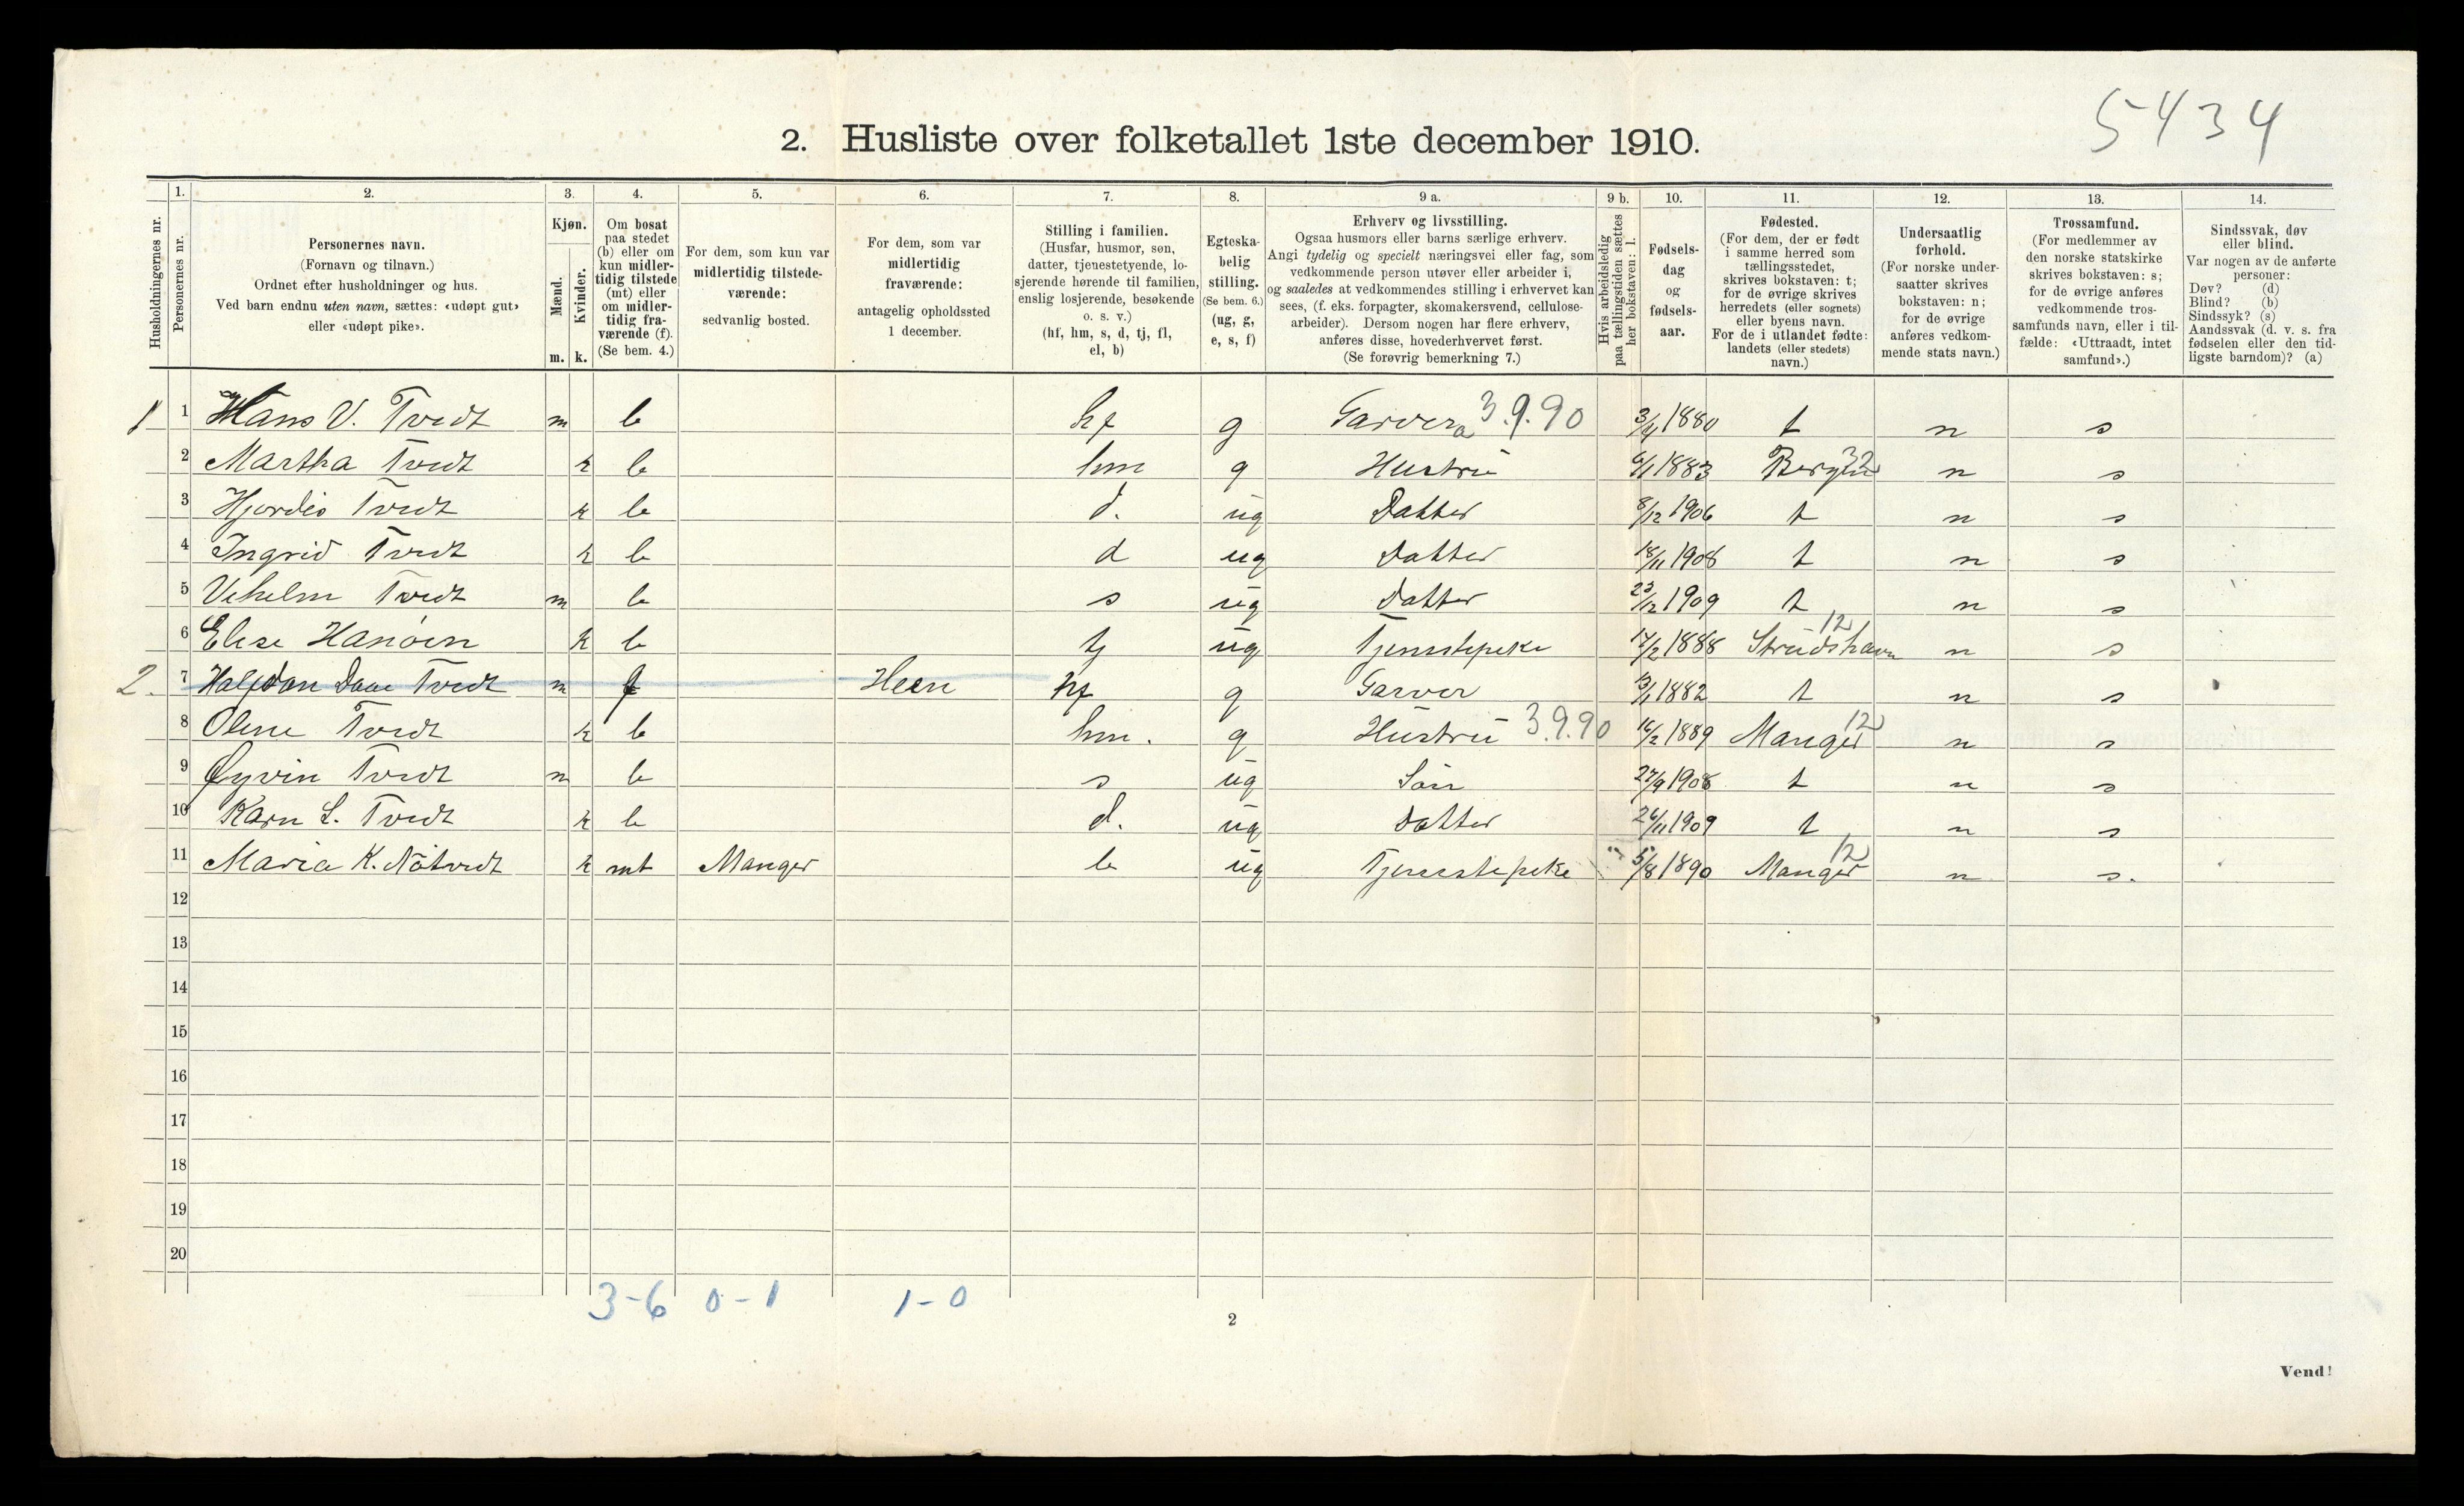 5434
2. Husliste over folketallet 1ste december 1910.
Husholdningernes nr.
1. Personernes nr.
2. Personernes navn. (Fornavn og tilnavn.) Ordnet efter husholdninger og hus. Ved barn endnu uten navn, sættes: «udøpt gut» eller «udøpt pike».
3. Kjøn. Mænd. m. Kvinder. k.
4. Om bosat paa stedet (b) eller om kun midlertidig tilstede (mt) eller om midlertidig fraværende (f). (Se bem. 4.)
5. For dem, som kun var midlertidig tilstedeværende: sedvanlig bosted.
6. For dem, som var midlertidig fraværende: antagelig opholdssted 1 december.
7. Stilling i familien. (Husfar, husmor, søn, datter, tjenestetyende, losjerende hørende til familien, enslig losjerende, besøkende o. s. v.) (hf, hm, s, d, tj, fl, el, b)
8. Egteskabelig stilling. (Se bem. 6.) (ug, g, e, s, f)
9 a. Erhverv og livsstilling. Ogsaa husmors eller barns særlige erhverv. Angi tydelig og specielt næringsvei eller fag, som vedkommende person utøver eller arbeider i, og saaledes at vedkommendes stilling i erhvervet kan sees, (f. eks. forpagter, skomakersvend, cellulosearbeider). Dersom nogen har flere erhverv, anføres disse, hovederhvervet først. (Se forøvrig bemerkning 7.)
9 b. Hvis arbeidsledig paa tællingstiden sættes her bokstaven: l.
10. Fødselsdag og fødselsaar.
11. Fødested. (For dem, der er født i samme herred som tællingsstedet, skrives bokstaven: t; for de øvrige skrives herredets (eller sognets) eller byens navn. For de i utlandet fødte: landets (eller stedets) navn.)
12. Undersaatlig forhold. (For norske undersaatter skrives bokstaven: n; for de øvrige anføres vedkommende stats navn.)
13. Trossamfund. (For medlemmer av den norske statskirke skrives bokstaven: s; for de øvrige anføres vedkommende trossamfunds navn, eller i tilfælde: «Uttraadt, intet samfund».)
14. Sindssvak, døv eller blind. Var nogen av de anførte personer: Døv? (d) Blind? (b) Sindssyk? (s) Aandssvak (d. v. s. fra fødselen eller den tidligste barndom)? (a)
1 1 Hans V. Tvedt m b hf g Garver a 3.9.90 3/4 1880 t n s
2 Martha Tvedt k b hm g Hustru 6/1 1883 Bergen 32 n s
3 Hjordis Tvedt k b d. ug Datter 8/12 1906 t n s
4 Ingrid Tvedt k b d ug Datter 18/11 1908 t n s
5 Vihelm Tvedt m b s ug Datter 23/12 1909 t n s
6 Elise Hanöen k b tj ug Tjenestepike 17/2 1888 Strudshavn 12 n s
2. 7 Halfdan Daae Tvedt m f Heen hf g Garver 13/1 1882 t n s
8 Oline Tvedt k b hm. g Hustru 3.9.90 16/2 1889 Manger 12 n s
9 Øyvin Tvedt m b s ug Sön 27/9 1908 t n s
10 Karn L. Tvedt k b d. ug Datter 26/11 1909 t n s
11 Maria K. Nötvedt k mt Manger b ug Tjenestepike 5/8 1890 Manger 12 n s.
12
13
14
15
16
17
18
19
20
3-6 0-1 1-0
2
Vend!